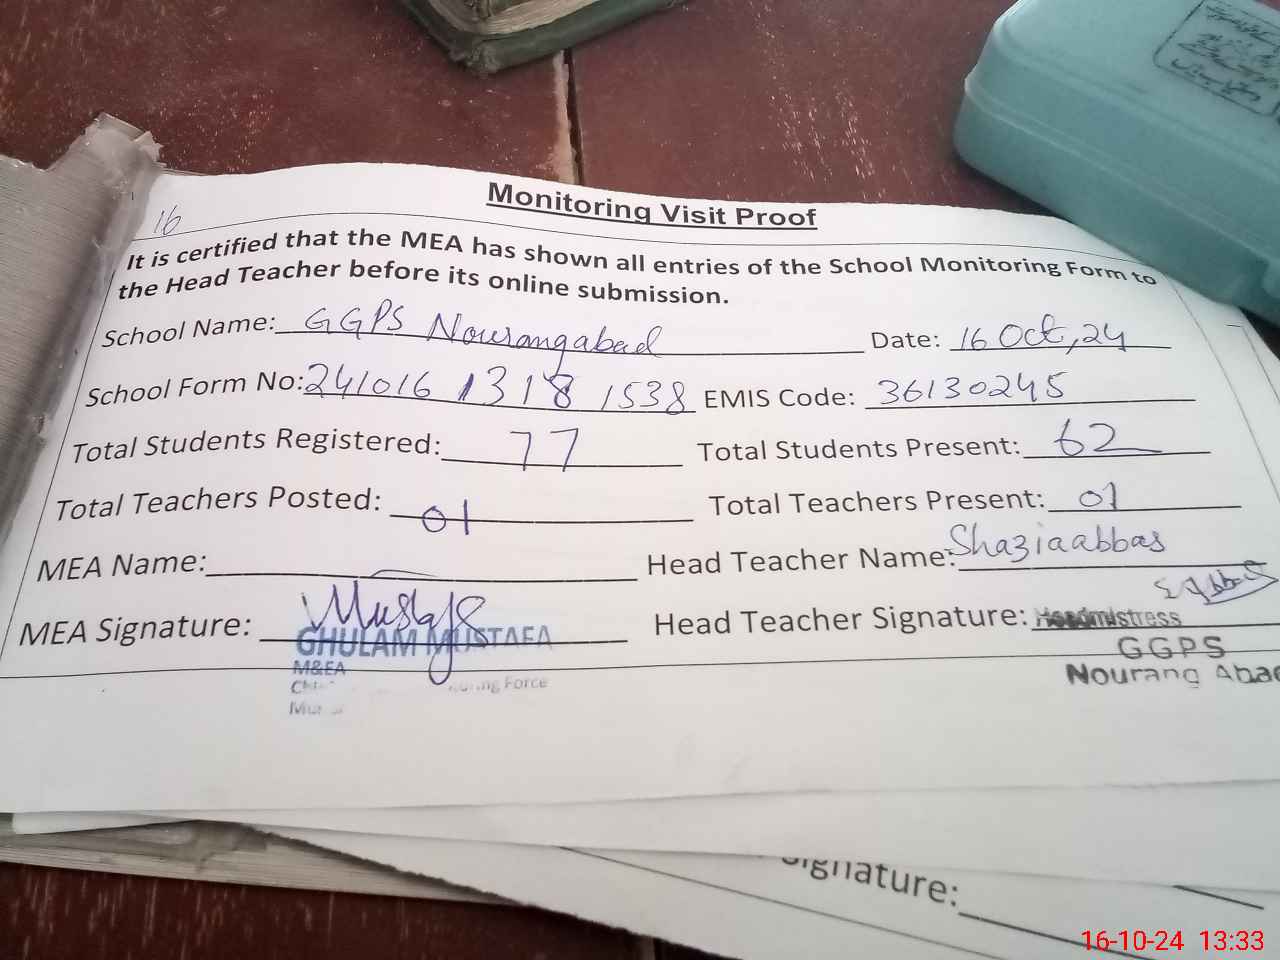 16
Monitoring Visit Proof
It is certified that the MEA has shown all entries of the School Monitoring Form to
the Head Teacher before its online submission.
School Name: GGPS Nourangabad Date: 16 Oct, 24
School Form No: 241016 1318 1538 EMIS Code: 36130245
Total Students Registered: 77 Total Students Present: 62
Total Teachers Posted: 01 Total Teachers Present: 01
MEA Name: Head Teacher Name: Shazia abbas
MEA Signature: Mustafa Head Teacher Signature: Headmistress
GHULAM MUSTAFA GGPS
M&EA Nourang Abad
Force
Signature:
16-10-24 13:33